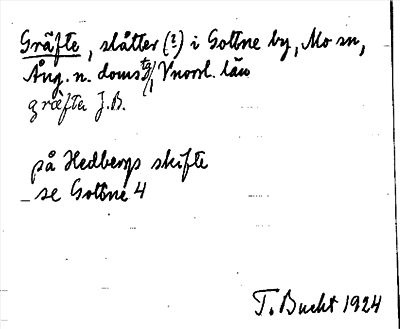 Gräfte, slåtter (?) i Gottne by, Mo sn,
Ång. n. doms tg, Vnorrl. län
gräfta J.B.
på Hedbergs skifte
se Gottne 4
T. Bucht 1924